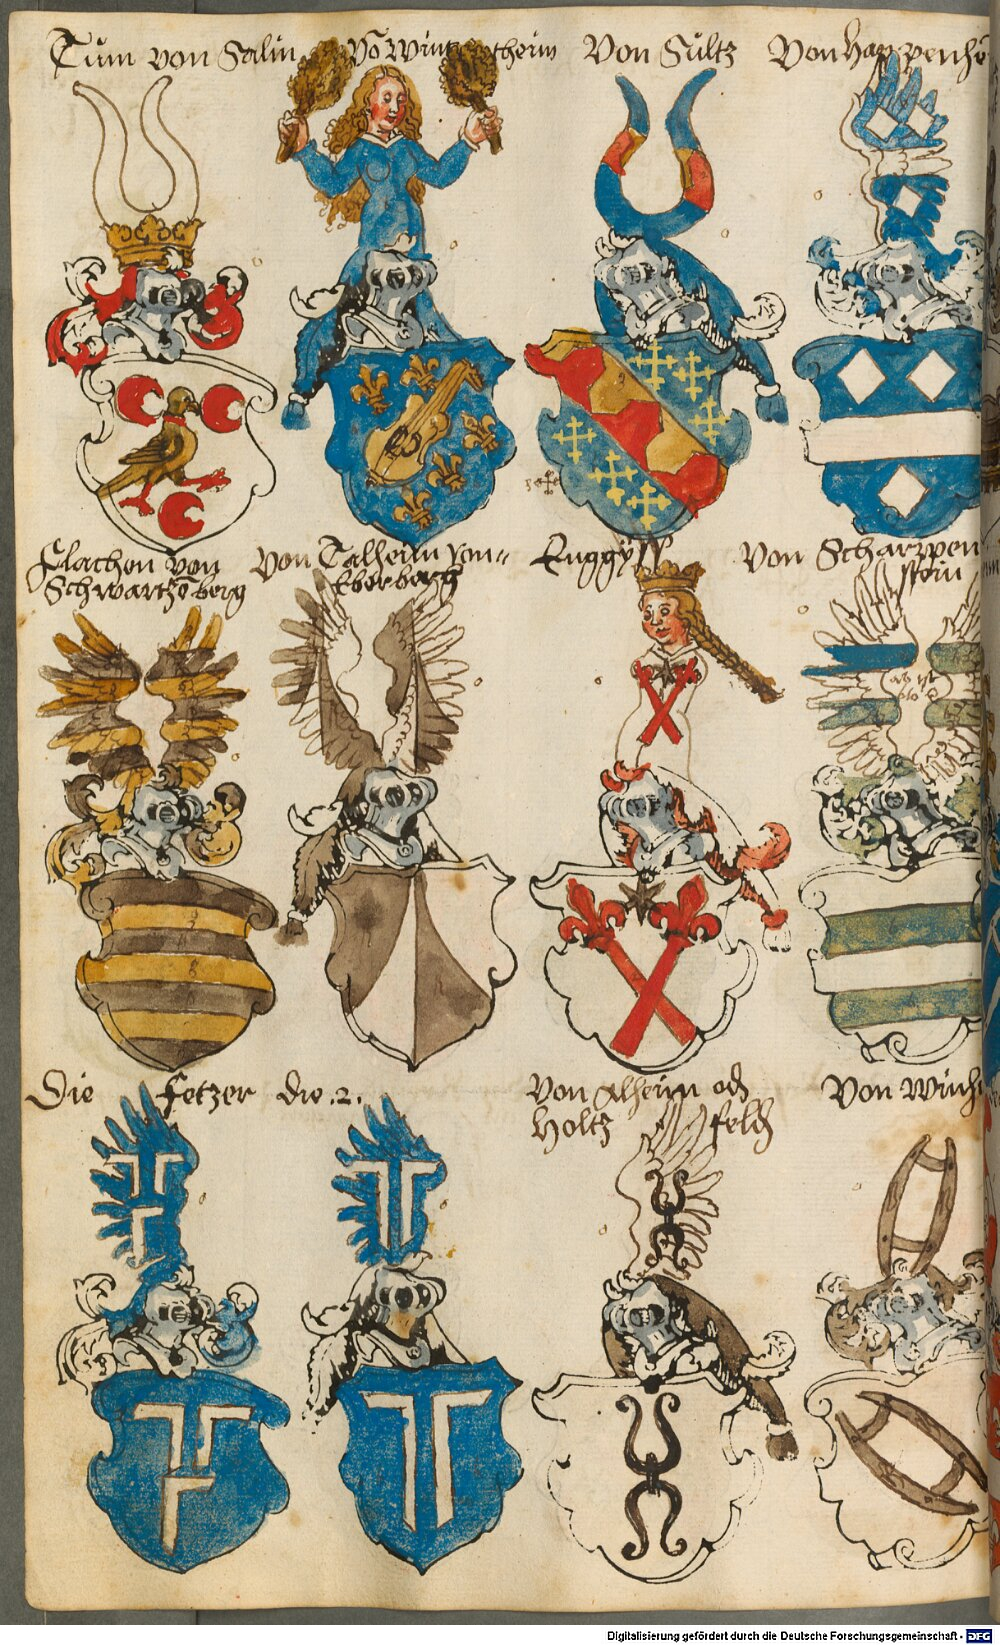 Tum von Salin
Vō Wintzertheim
Von Sultz
Von Happenhe
Flachen von
Schwartzēberg
Von Talheim von
Eberberg
Ruggÿ
Von Scharppen
stein
Die Fetzer
die .2.
Von Alheim od
Holtz feld
Von
Digitalisierung gefördert durch die Deutsche Forschungsgemeinschaft - DFG